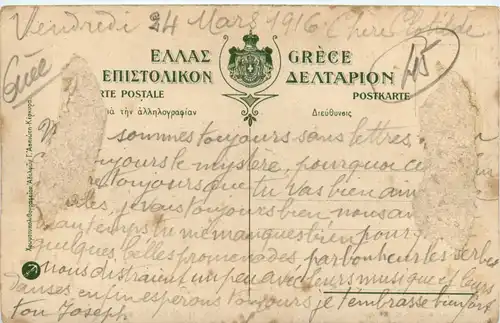 Vendredi 24 Mars 1916. Chère Clotilde
45
ΕΛΛΑΣ GRÈCE
ΕΠΙΣΤΟΛΙΚΟΝ ΔΕΛΤΑΡΙΟΝ
RTE POSTALE POSTKARTE
ρὰ τὴν ἀλληλογραφίαν Διεύθυνσις
sommes toujours sans lettres,
toujours le mystère, pourquoi ce
toujours que tu vas bien ain
, je vais toujours bien nous av
beau temps tu me manques bien pour
quelques belles promenades par bonheur les serbes
nous distraient un peu avec leurs musique et leurs
danses enfin espérons toujours je t'embrasse bien fort
ton Joseph